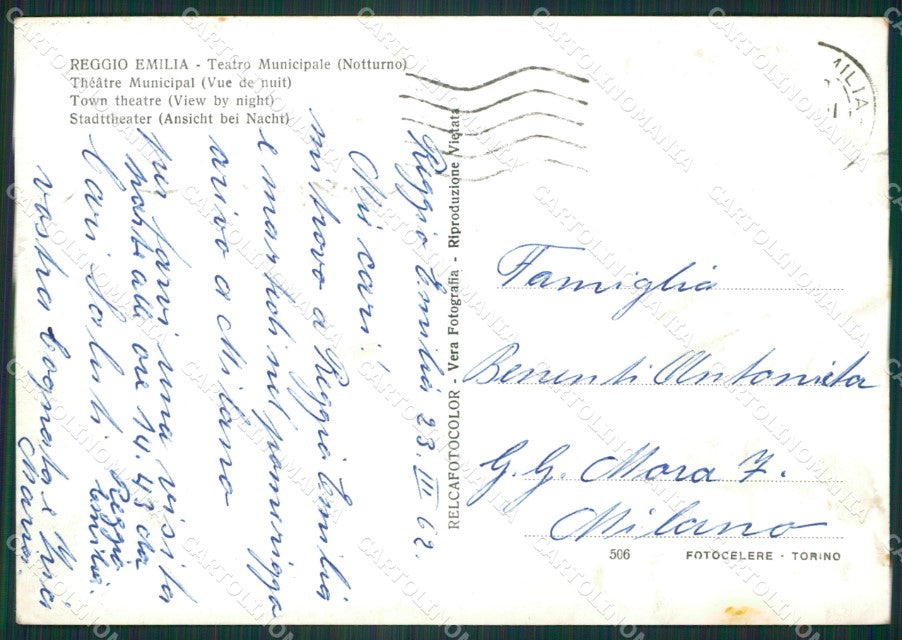 REGGIO EMILIA - Teatro Municipale (Notturno)
Théâtre Municipal (Vue de nuit)
Town theatre (View by night)
Stadttheater (Ansicht bei Nacht)
Reggio Emilia 23. III 62.
Miei cari!
mi trovo a Reggio Emilia
e martedi nel pomerigga
arivo a Milano
per farvi una visita
parte alle ore 14.43 da
Reggio
Emilia.
Cari Saluti
vostra Cognata e Zia
Maria.
RELCAFOTOCOLOR - Vera Fotografia - Riproduzione Vietata
MILIA
Famiglia
Benenti Antonieta
G. G. Mora 7.
Milano
506 FOTOCELERE - TORINO
CARTOLINOMANIA